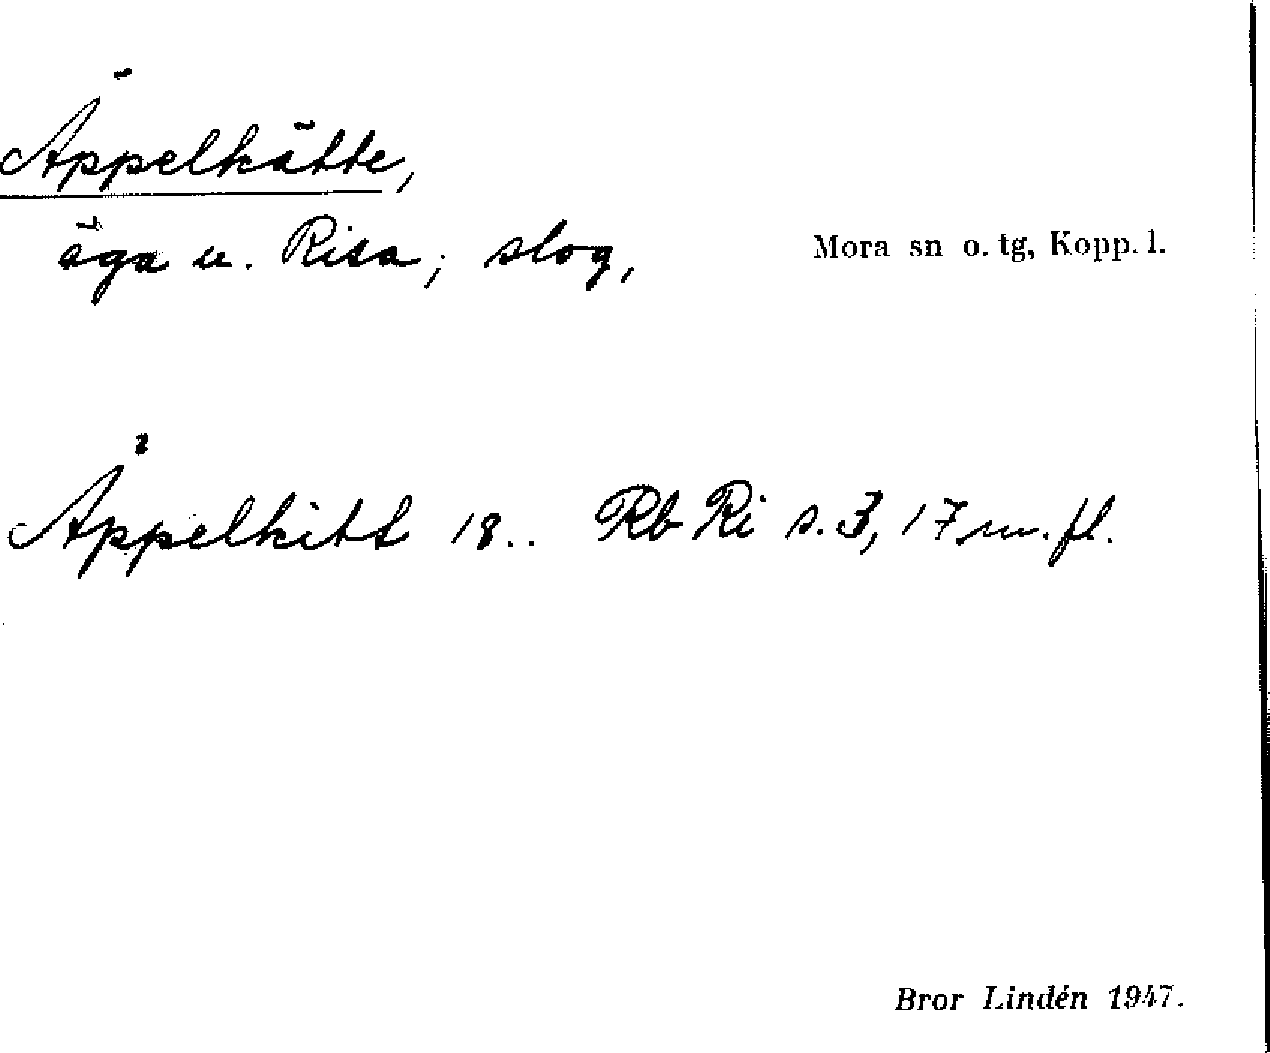 Äppelkätte,
äga u. Risa; slog,
Mora sn o. tg, Kopp. l.
Äppelkitt 18.. Rb Ri s. 3, 17 m. fl.
Bror Lindén 1947.